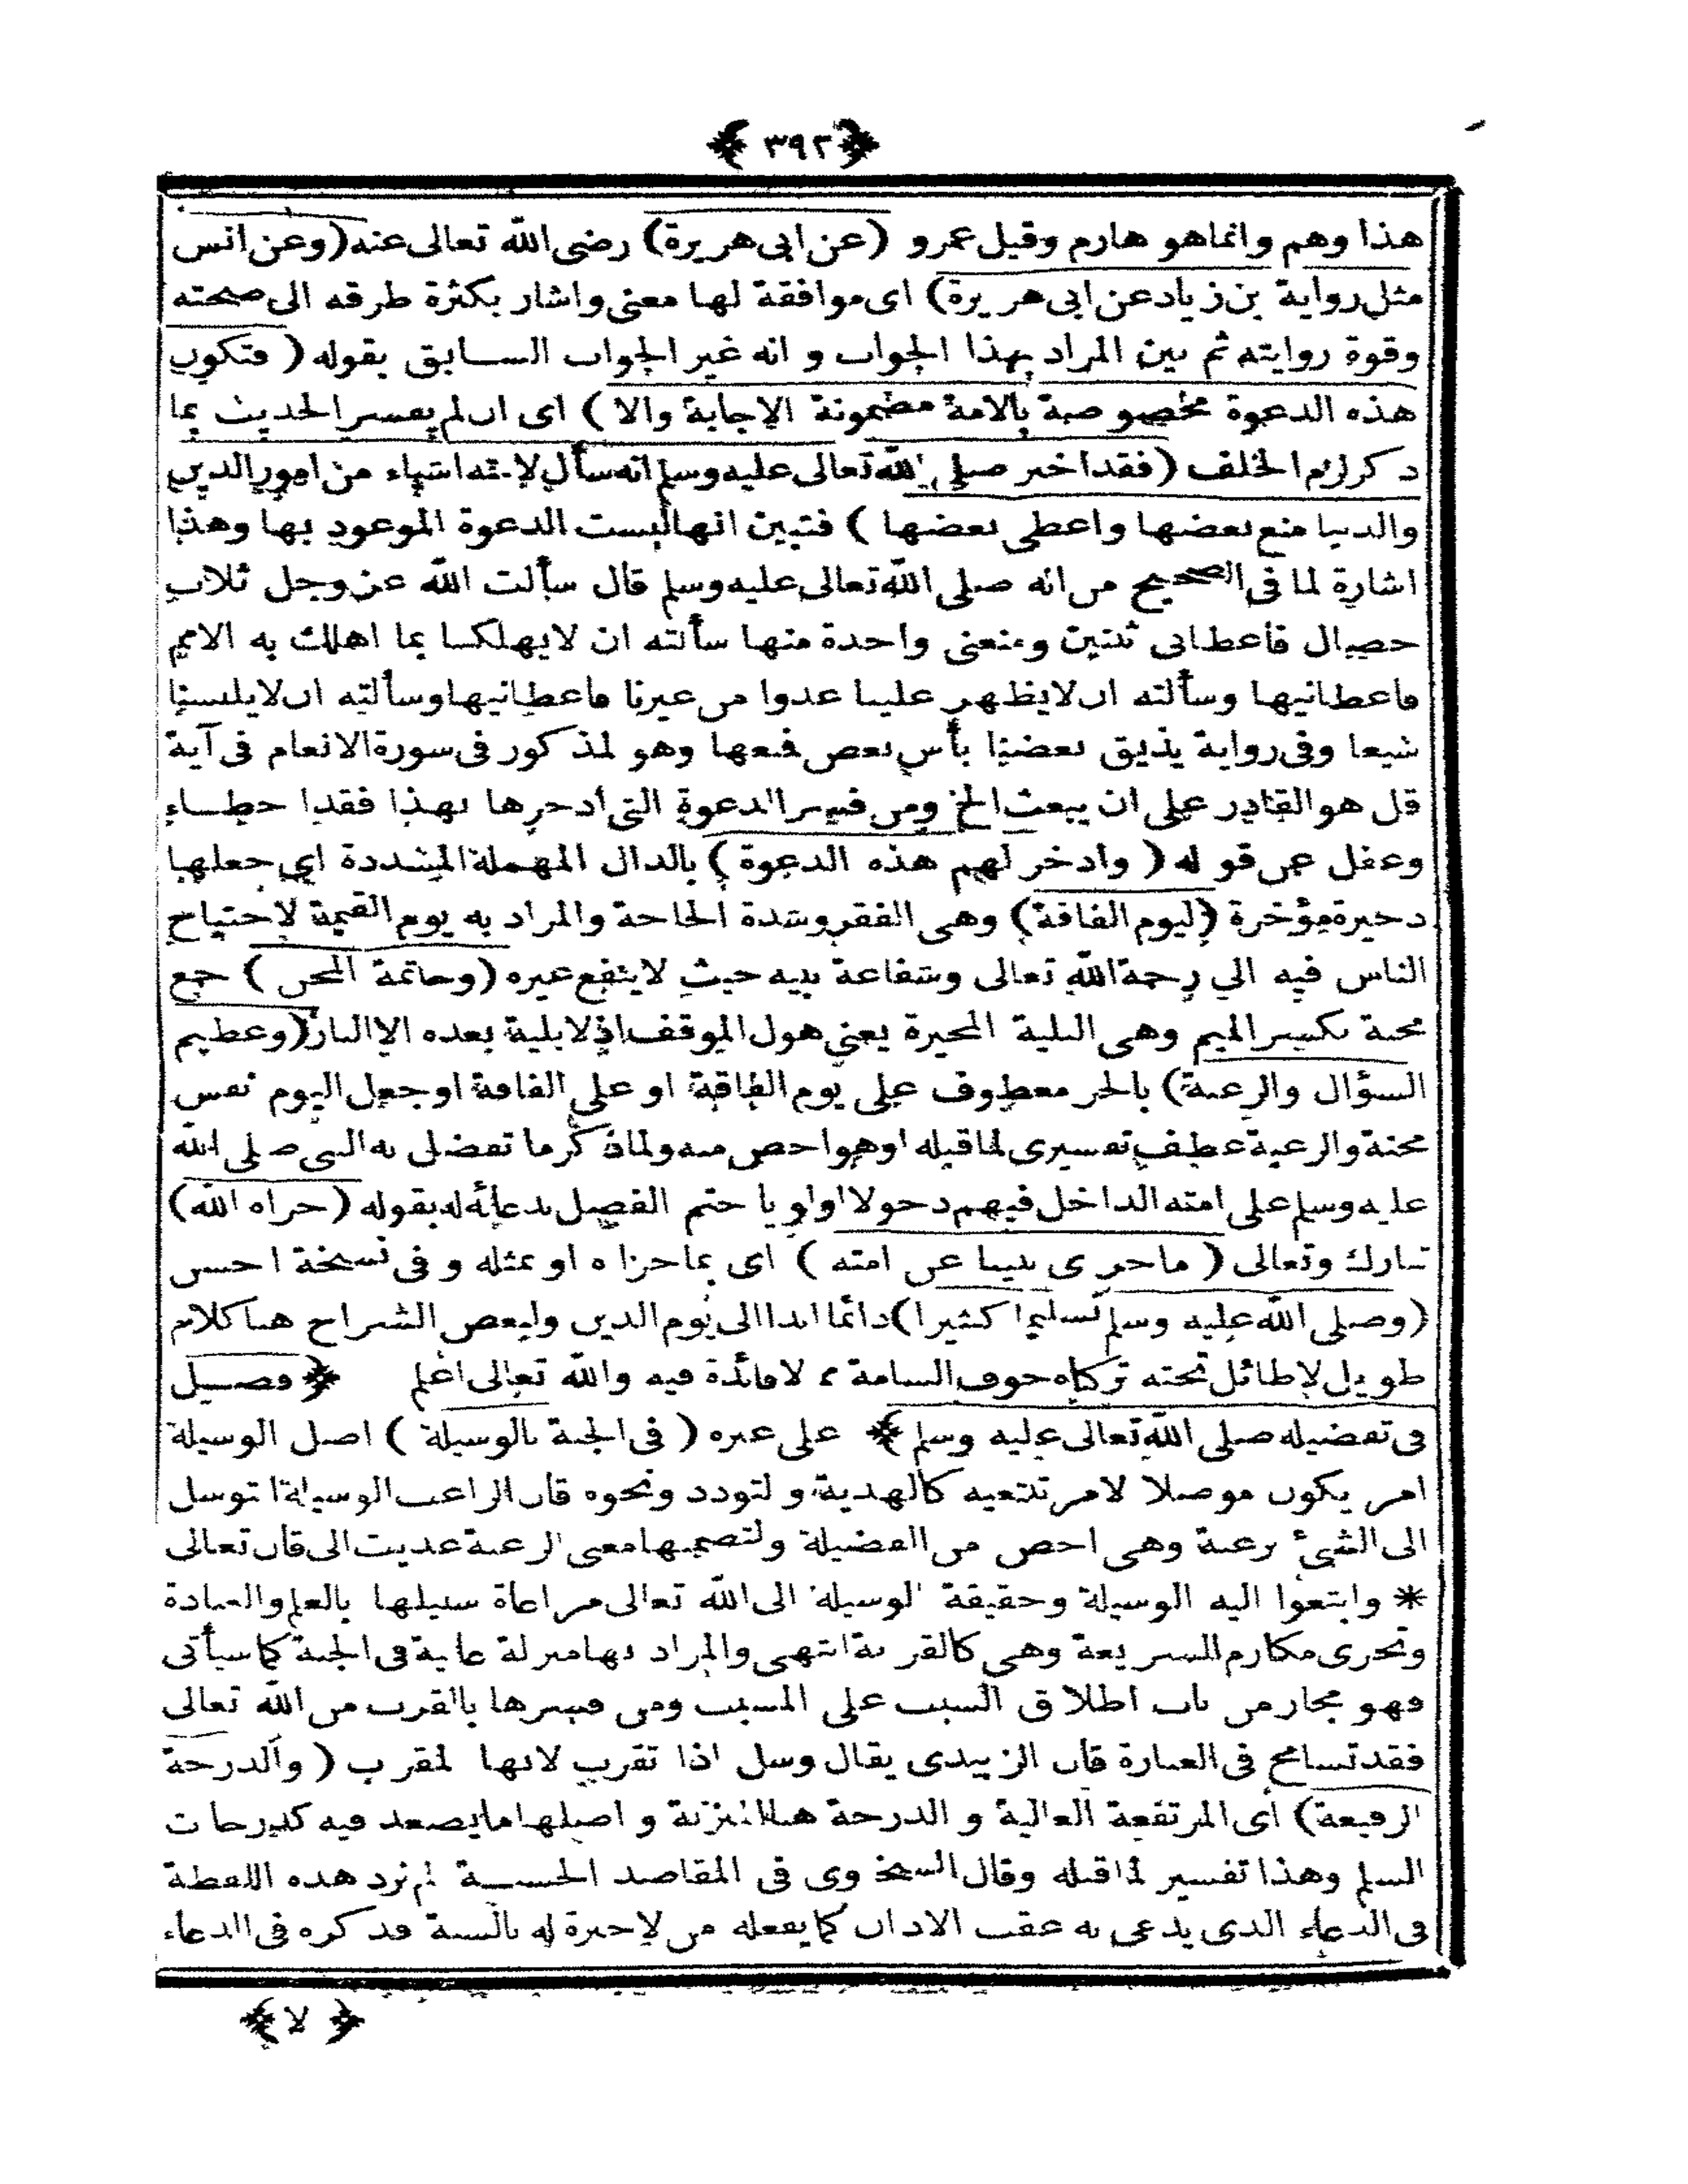 ﴿ ٣٩٢ ﴾
هذا وهم وانماهو هارم وقيل عمرو (عن ابى هريرة) رضى الله تعالى عنه (وعن انس
مثل رواية بن زياد عن ابى هريرة) اى موافقة لها معنى واشار بكثرة طرقه الى صحته
وقوة روايته ثم بين المراد بهذا الجواب و انه غير الجواب السابق بقوله ( فتكون
هذه الدعوة مخصوصة بالامة مضمونة الاجابة والا ) اى ان لم يفسر الحديث بما
ذكر لزم الخلف (فقد اخبر صلى الله تعالى عليه وسلم انه سأل لامته اشياء من امور الدين
والدنيا منع بعضها واعطى بعضها ) فتبين انها ليست الدعوة الموعود بها وهذا
اشارة لما فى الصحيح من انه صلى الله تعالى عليه وسلم قال سألت الله عز وجل ثلاث
خصال فأعطانى ثنتين ومنعنى واحدة منها سألته ان لا يهلكنا بما اهلك به الامم
فاعطانيها وسألته ان لا يظهر علينا عدوا من غيرنا فاعطانيها وسألته ان لا يلبسنا
شيعا وفى رواية يذيق بعضنا بأس بعض فمنعها وهو لمذكور فى سورة الانعام فى آية
قل هو القادر على ان يبعث الخ ومن فسر الدعوة التى أدخرها بهذا فقد اخطــاء
وغفل عن قوله ( وادخر لهم هذه الدعوة ) بالدال المهملة المشددة اى جعلها
ذخيرة مؤخرة (ليوم الفاقة) وهى الفقر وشدة الحاجة والمراد به يوم القيمة لاحتياج
الناس فيه الى رحمة الله تعالى وشفاعة نبيه حيث لا ينفع غيره (وخاتمة المحن ) جمع
محنة بكسر الميم وهى البلية المحيرة يعنى هول الموقف اذ لا بلية بعده الا النار (وعظيم
السؤال والرغبة) بالجر معطوف على يوم الفاقة او على الفاقة او جعل اليوم نفس
محنة والرغبة عطف تفسيرى لما قبله اوهو اخص منه ولما ذكر ما تفضل به النبى صلى الله
عليه وسلم على امته الداخل فيهم دخولا اولويا ختم الفصل بدعائه له بقوله (جزاه الله)
تبارك وتعالى ( ما جزى نبيا عن امته ) اى بما جزاه او بمثله و فى نسخة احسن
(وصلى الله عليه وسلم تسليما كثيرا) دائما ابدا الى يوم الدين ولبعض الشراح هنا كلام
طويل لاطائل تحته تركناه خوف السامة مما لا فائدة فيه والله تعالى اعلم ﴿ فصــل
فى تفضيله صلى الله تعالى عليه وسلم ﴾ على غيره ( فى الجنة بالوسيلة ) اصل الوسيلة
امر يكون موصلا لامر تبتغيه كالهدية و لتودد ونحوه قال الراغب الوسيلة التوسل
الى الشئ برغبة وهى اخص من الفضيلة ولتضمنها معنى الرغبة عديت الى قال تعالى
* وابتغوا اليه الوسيلة وحقيقة الوسيلة الى الله تعالى مراعاة سبيلها بالعلم والعبادة
وتحرى مكارم الشريعة وهى كالقربة انتهى والمراد بها منزلة عالية فى الجنة كما سيأتى
فهو مجاز من باب اطلاق السبب على المسبب ومن فسرها بالقرب من الله تعالى
فقد تسامح فى العبارة قال الزبيدى يقال وسل اذا تقرب لانها لمقرب ( والدرجة
الرفيعة) أى المرتفعة العالية و الدرجة هنا المنزلة و اصلها ما يصعد فيه كدرجات
السلم وهذا تفسير لما قبله وقال السخاوى فى المقاصد الحسنــة لم نرد هذه اللفظة
فى الدعاء الذى يدعى به عقب الاذان كما يفعله من لاخبرة له بالسنة فذكره فى الدعاء
﴿ لا ﴾